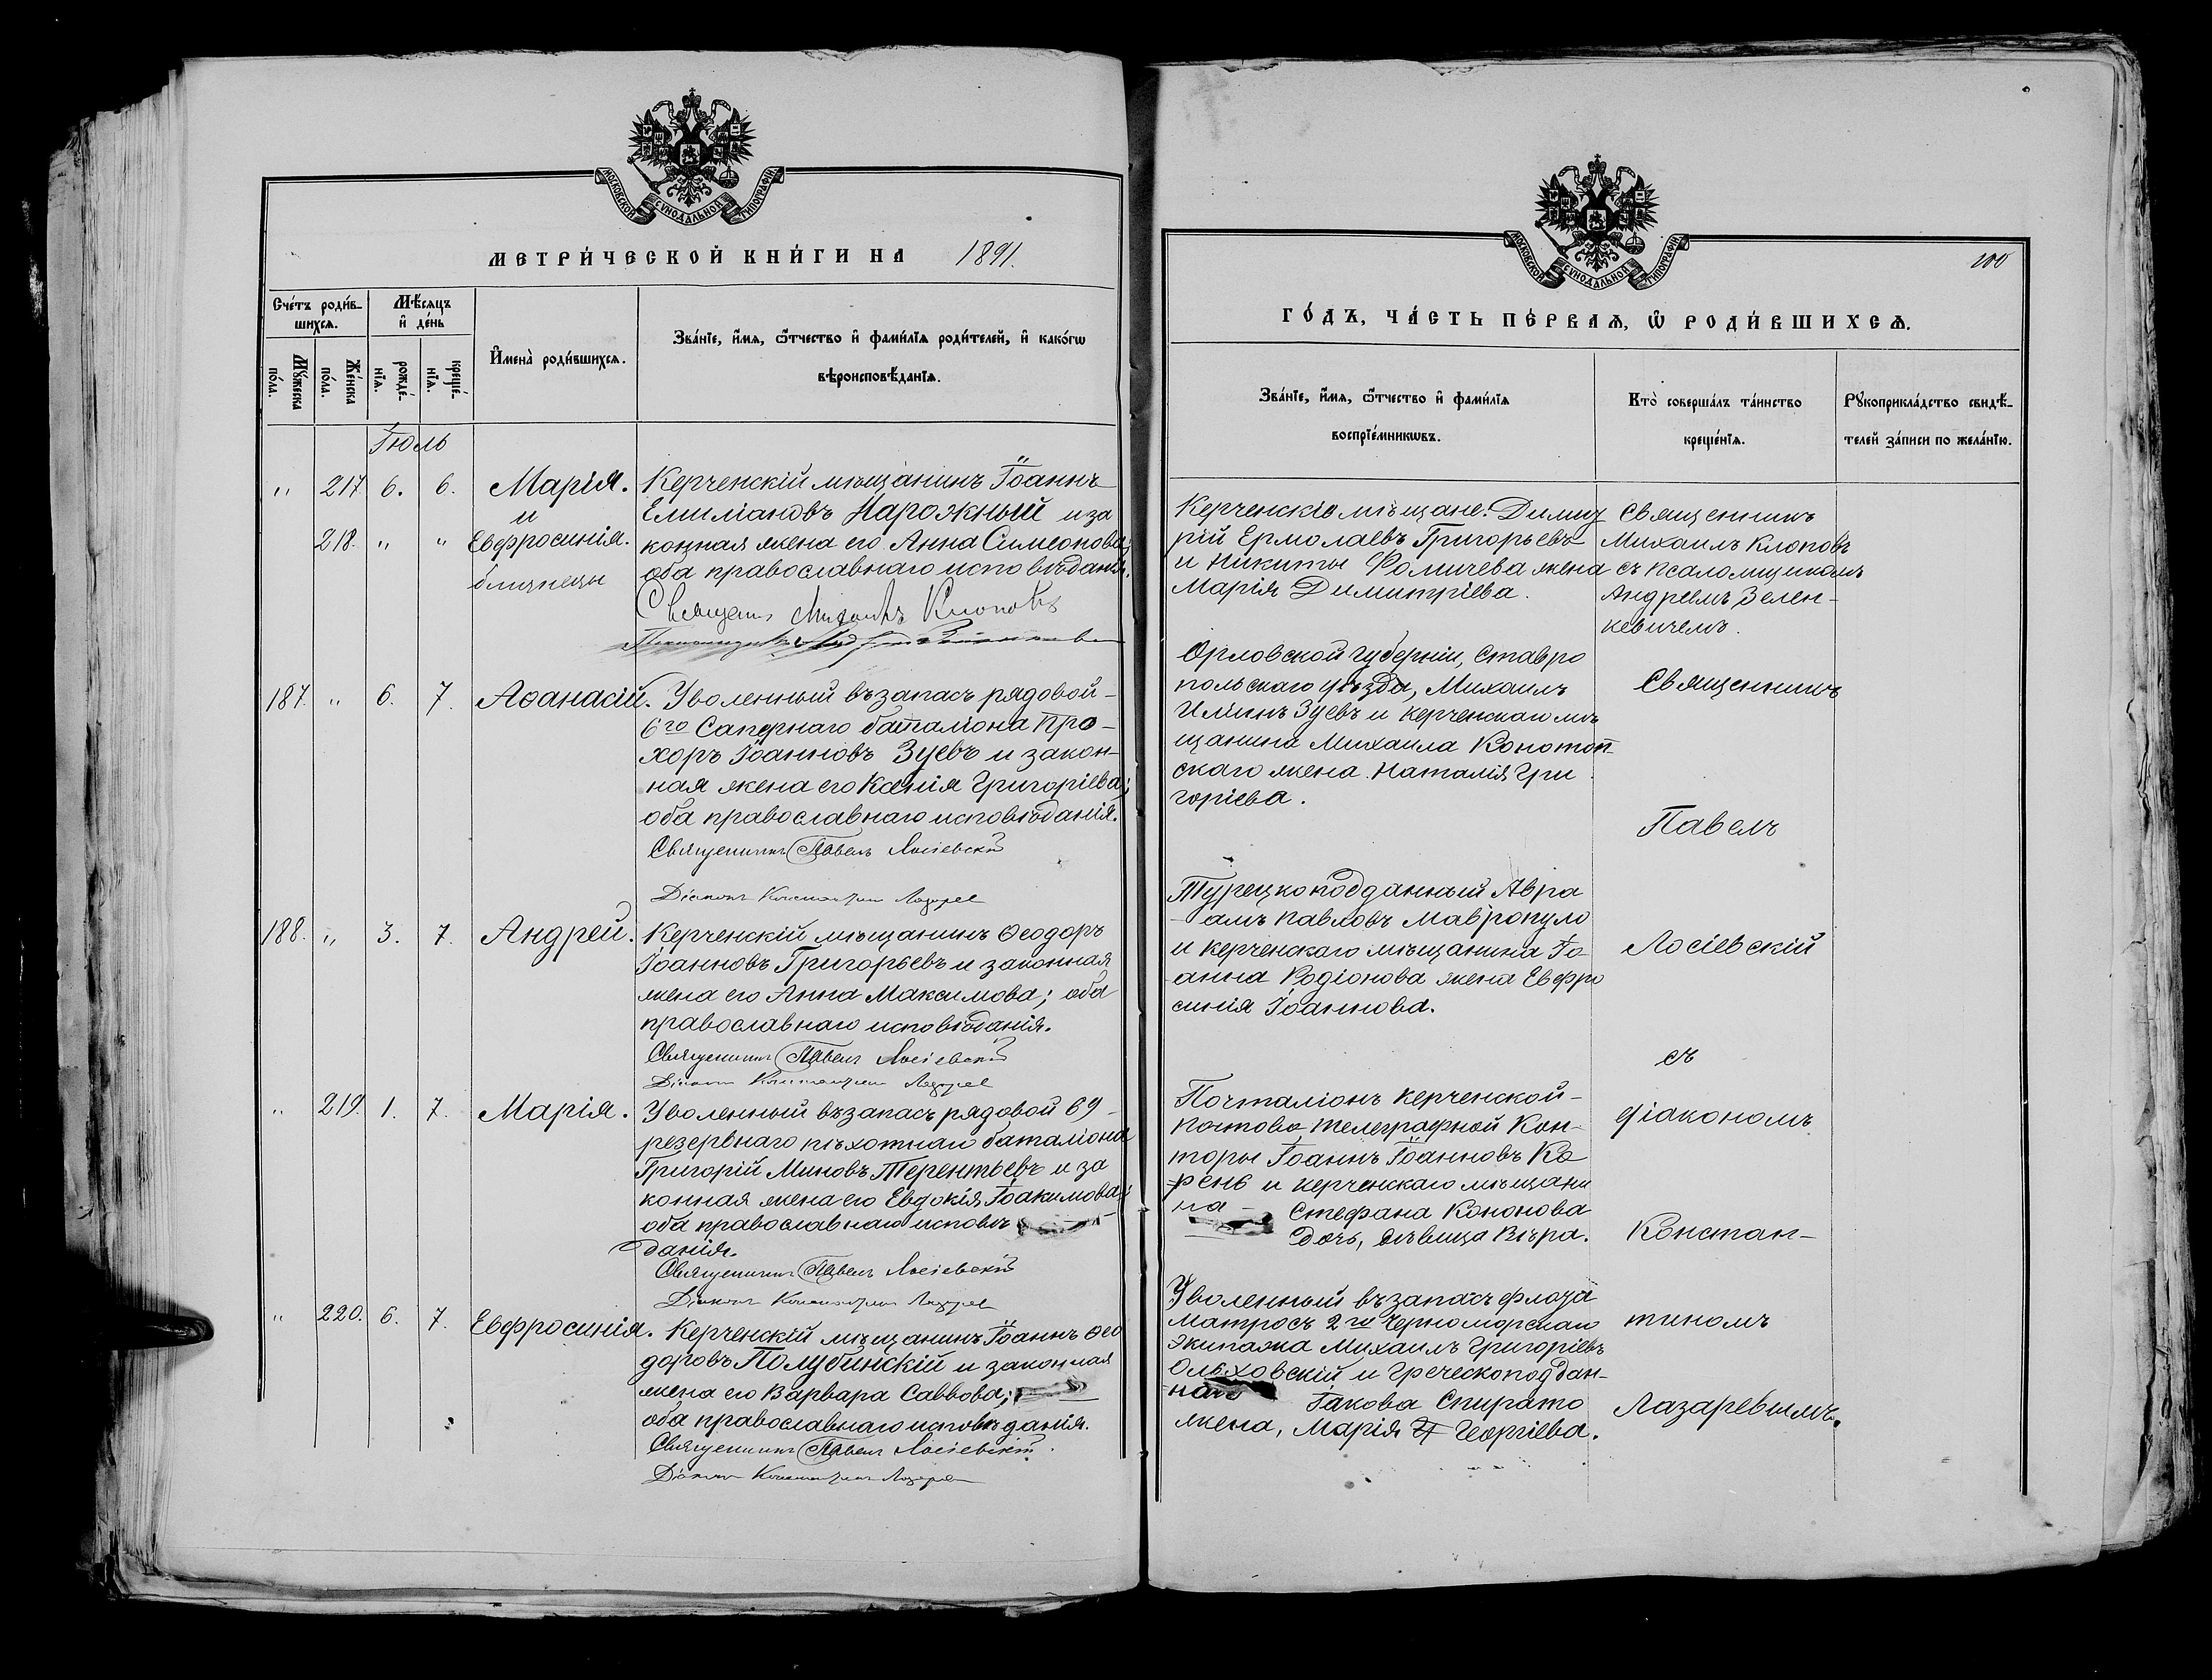 МОСКОВСКОЙ СУНОДАЛЬНОЙ ТИПОГРАФІИ
МЕТРИ́ЧЕСКОЙ КНИ́ГИ НА 1891.
Сче́тъ роди́в-
шихсѧ.
Мѣ́сѧцъ
и҆ де́нь
Мꙋ́жеска
по́ла.
Же́нска
по́ла.
рожде́-
нїѧ.
креще́-
нїѧ.
И҆мена̀ роди́вшихсѧ.
Зва́нїе, и҆́мѧ, ѻ҆́тчество и҆ фами́лїѧ роди́телей, и҆ како́гѡ
вѣроисповѣ́данїѧ.
Іюль
„ 217 6. 6. Марія.
и
218. „ „ Евфросинія.
близнецы
Керченскій мѣщанинъ Іоаннъ
Емиліановъ Нарожный и за
конная жена его Анна Симеонова;
оба православнаго исповѣданія.
Священ Михаилъ Клоповъ
187. „ 6. 7. Аѳанасій.
Уволенный въ запасъ рядовой
6го Сапернаго баталіона Про-
хоръ Іоанновъ Зуевъ и закон-
ная жена его Ксенія Григоріева;
оба православнаго исповѣданія.
Священникъ Павелъ Лосіевскій
Діаконъ Константин Лазарев
188. „ 3. 7. Андрей.
Керченскій мѣщанинъ Ѳеодоръ
Іоанновъ Григорьевъ и законная
жена его Анна Максимова; оба
православнаго исповѣданія.
Священникъ Павелъ Лосіевскій
Діаконъ Константин Лазарев
„ 219. 1. 7. Марія.
Уволенный въ запасъ рядовой 69-
резервнаго пѣхотнаго баталіона
Григорій Миновъ Терентьевъ и за
конная жена его Евдокія Іоакимова;
оба православнаго исповѣ
данія.
Священникъ Павелъ Лосіевскій
Діаконъ Константин Лазарев
„ 220. 6. 7. Евфросинія.
Керченскій мѣщанинъ Іоаннъ Ѳео
доровъ Полубинскій и законная
жена его Варвара Саввова;
оба православнаго исповѣданія.
Священникъ Павелъ Лосіевскій
Діаконъ Константин Лазарев
МОСКОВСКОЙ СУНОДАЛЬНОЙ ТИПОГРАФІИ
200
ГО́ДЪ, ЧА́СТЬ ПЕ́РВАѦ, Ѡ҆ РОДИ́ВШИХСѦ.
Зва́нїе, и҆́мѧ, ѻ҆́тчество и҆ фами́лїѧ
воспрїе́мникѡвъ.
Кто̀ соверша́лъ та́инство
креще́нїѧ.
Рꙋкоприкла́дство свидѣ́-
телей за́писи по жела́нїю.
Керченскіе мѣщане: Димит
рій Ермолаевъ Григорьевъ
и Никиты Фомичева жена
Марія Димитріева.
Священникъ
Михаилъ Клоповъ
съ псаломщикомъ
Андреемъ Зелен-
кевичемъ.
Орловской губерніи, Ставро
польскаго уѣзда, Михаилъ
Иліинъ Зуевъ и керченскаго мѣ
щанина Михаила Конотоп-
скаго жена Наталія Гри
горіева.
Священникъ
Павелъ
Турецкоподданный Авра
амъ Павловъ Мавропуло
и керченскаго мѣщанина Іо
анна Родіонова жена Евфро
синія Іоаннова.
Лосіевскій
съ
Почталіонъ Керченской-
почтово телеграфной Кон-
торы Іоаннъ Іоанновъ Ко
рень и керченскаго мѣщани
на Стефана Кононова
дочь, дѣвица Вѣра.
діакономъ
Констан-
Уволенный въ запасъ флота
матросъ 2го Черноморскаго
экипажа Михаилъ Григоріевъ
Ольховскій и греческоподдан-
наго Іакова Спирато
жена, Марія Георгіева.
тиномъ
Лазаревымъ.